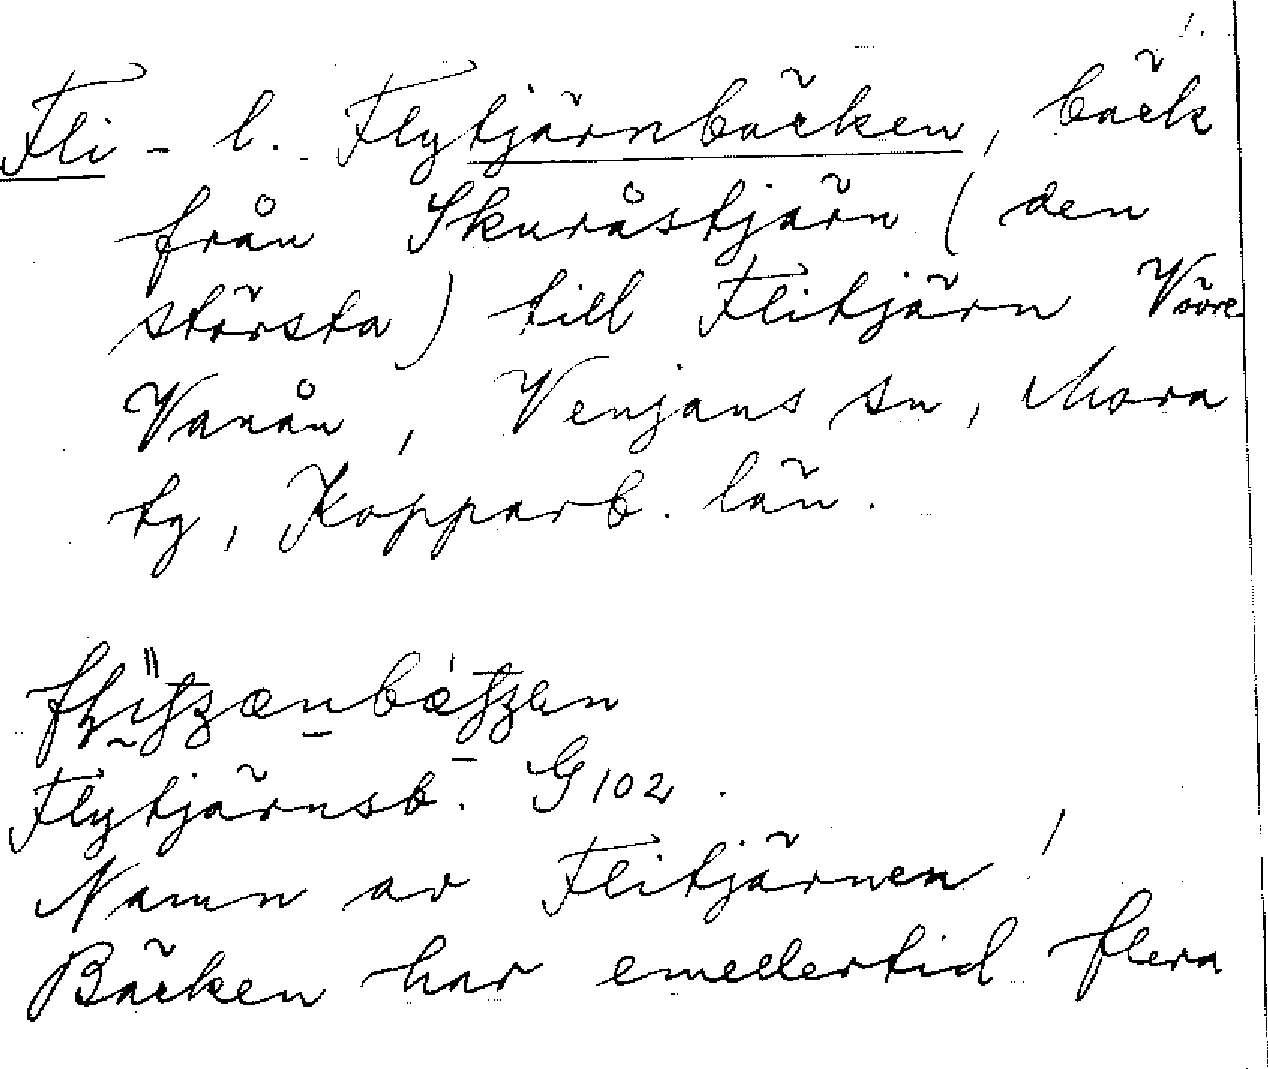 1.
Fli- l. Flytjärnbäcken, bäck
från Skuråstjärn (den
största) till Flitjärn
Vanån, Venjans sn, Mora
tg, Kopparb. län.
Flytjärnsb. G 102.
Namn av Flitjärnen!
Bäcken har emellertid flera